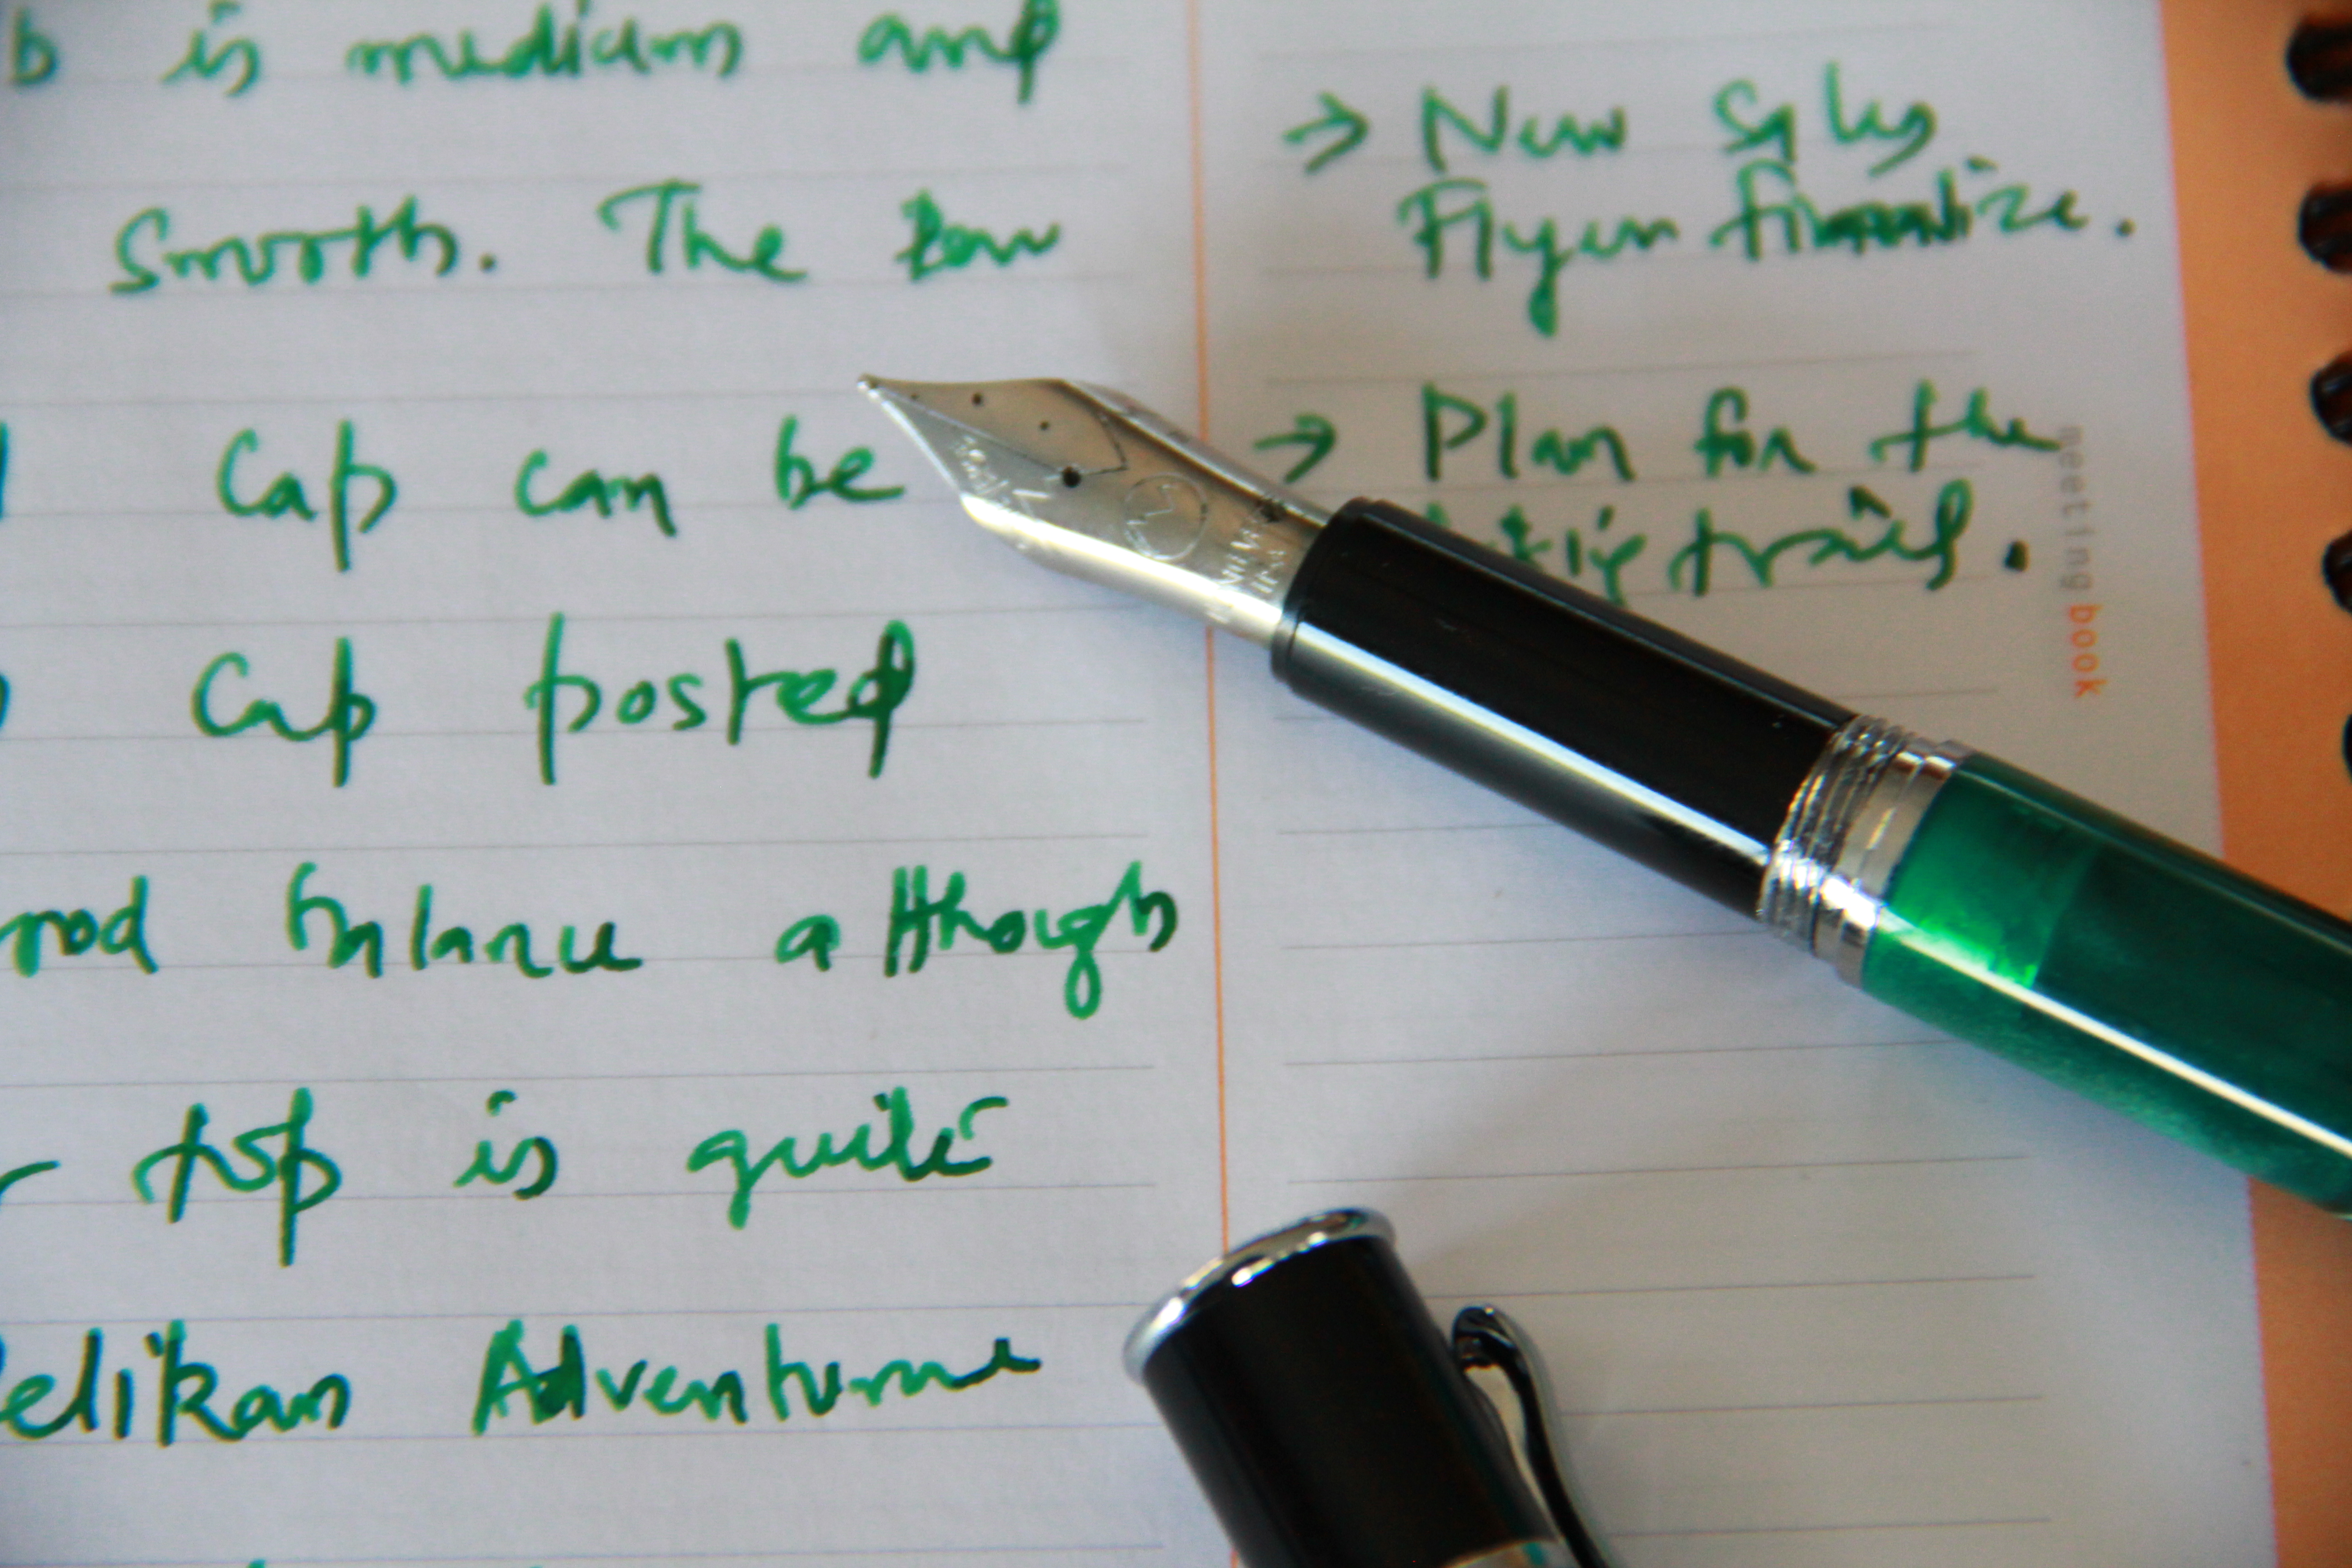 b is medium and
smooth. The
Cap can be
Cap posted
ood balance although
top is quite
elikan Adventure
→ New Sales
Flyer finalize.
→ Plan for the
trail.
meetingbook